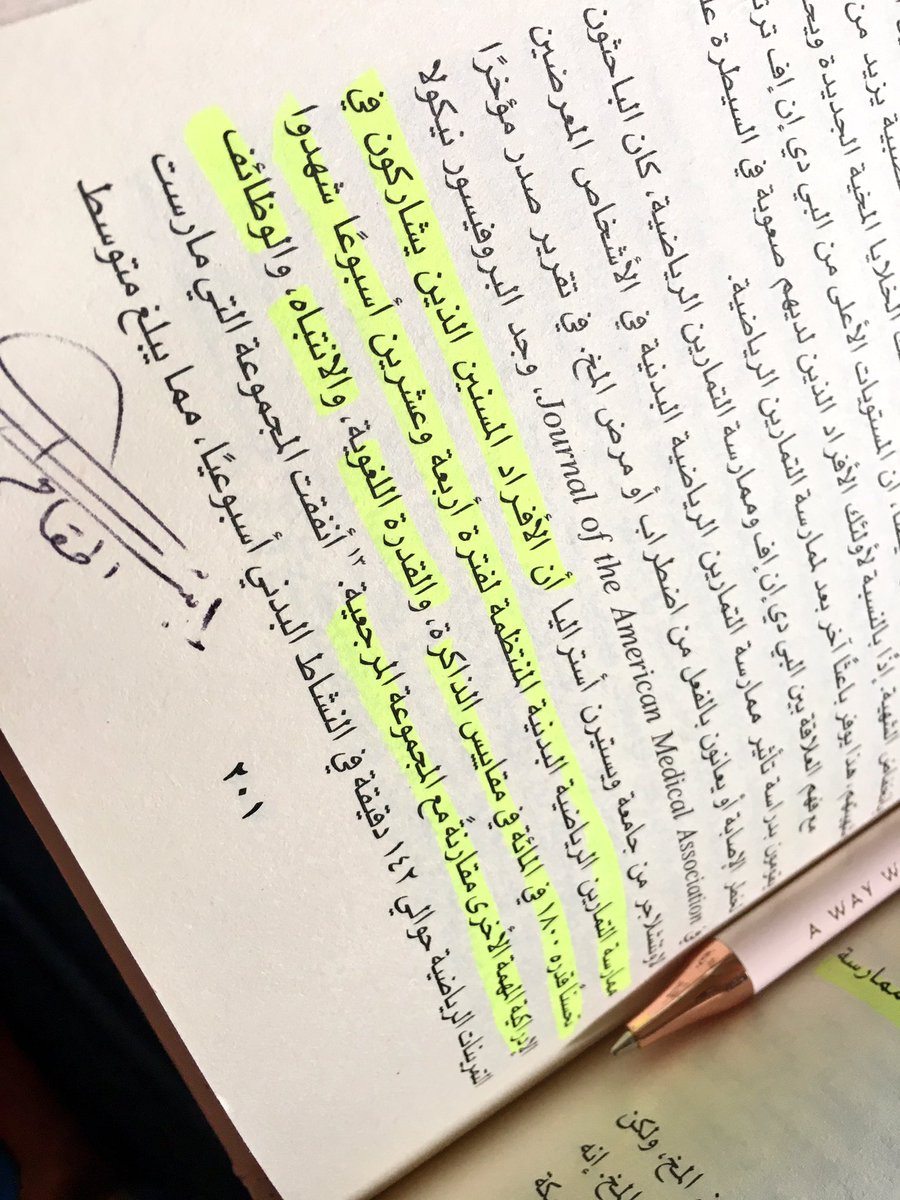 صبية يزيد من
الخلايا المخية الجديدة
أن المستويات الأعلى من البي دي إن إف
إذًا بالنسبة لأولئك الأفراد الذين لديهم صعوبة في السيطرة
هذا يوفر باعثًا آخر بعد لممارسة التمارين الرياضية.
مع فهم العلاقة بين البي دي إن إف وممارسة التمارين الرياضية، كان الباحثون
يقومون بدراسة تأثير ممارسة التمارين الرياضية البدنية في الأشخاص المعرضين
لخطر الإصابة أو يعانون بالفعل من اضطراب أو مرض المخ. في تقرير صدر مؤخرًا
في Journal of the American Medical Association، وجد البروفيسور نيكولا
لاوتنشلاجر من جامعة ويسترن أستراليا أن الأفراد المسنين الذين يشاركون في
ممارسة التمارين الرياضية البدنية المنتظمة لفترة أربعة وعشرين أسبوعًا شهدوا
تحسنًا قدره ١٨٠٠ في المائة في مقاييس الذاكرة، والقدرة اللغوية، والانتباه، والوظائف
الإدراكية المهمة الأخرى مقارنةً مع المجموعة المرجعية.١٣ أنفقت المجموعة التي مارست
التمرينات الرياضية حوالي ١٤٢ دقيقة في النشاط البدني أسبوعيًا، مما يبلغ متوسط
٢٠١
A WAY W
ممارسة
المخ، ولكن
المخ. إنه